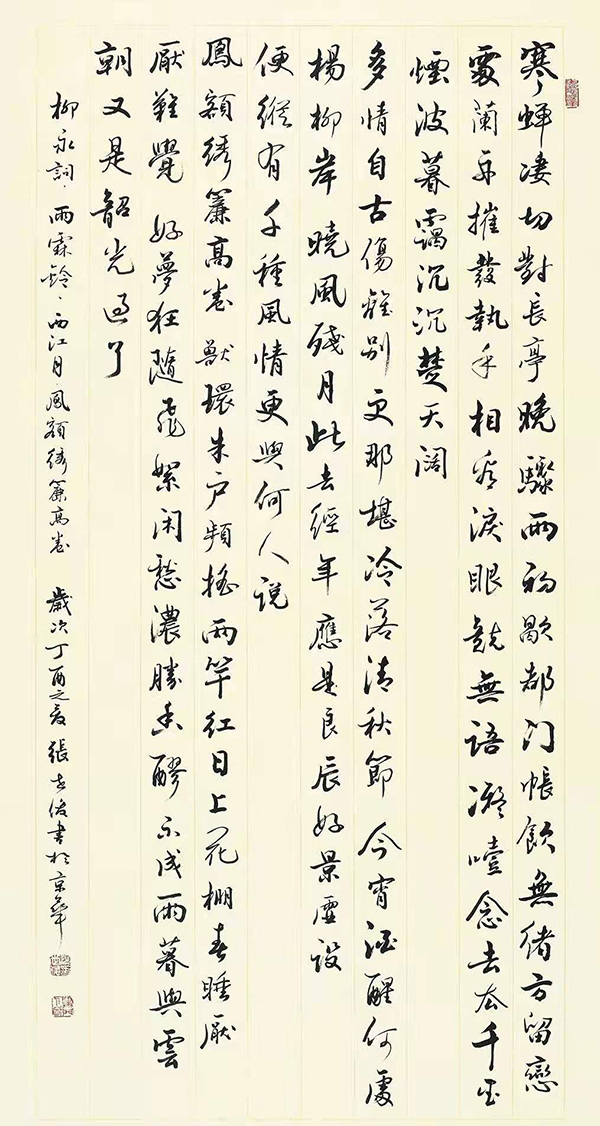 寒蟬凄切對長亭晚驟雨初歇都门帳飲無緒方留戀
處蘭舟摧發執手相看淚眼競無語凝噎念去去千里
煙波暮靄沉沉楚天阔
多情自古傷離别更那堪冷落清秋節今宵酒醒何處
楊柳岸曉風殘月此去經年應是良辰好景虛设
便縱有千種風情更與何人说
鳳額绣簾高卷獸環朱户頻搖兩竿红日上花棚春睡厭
厭難覺好夢狂隨飛絮闲愁濃勝香醪不成雨暮與雲
朝又是韶光過了
柳永詞雨霖鈴西江月鳳額绣簾高卷歲次丁酉之春張志俊書於京華